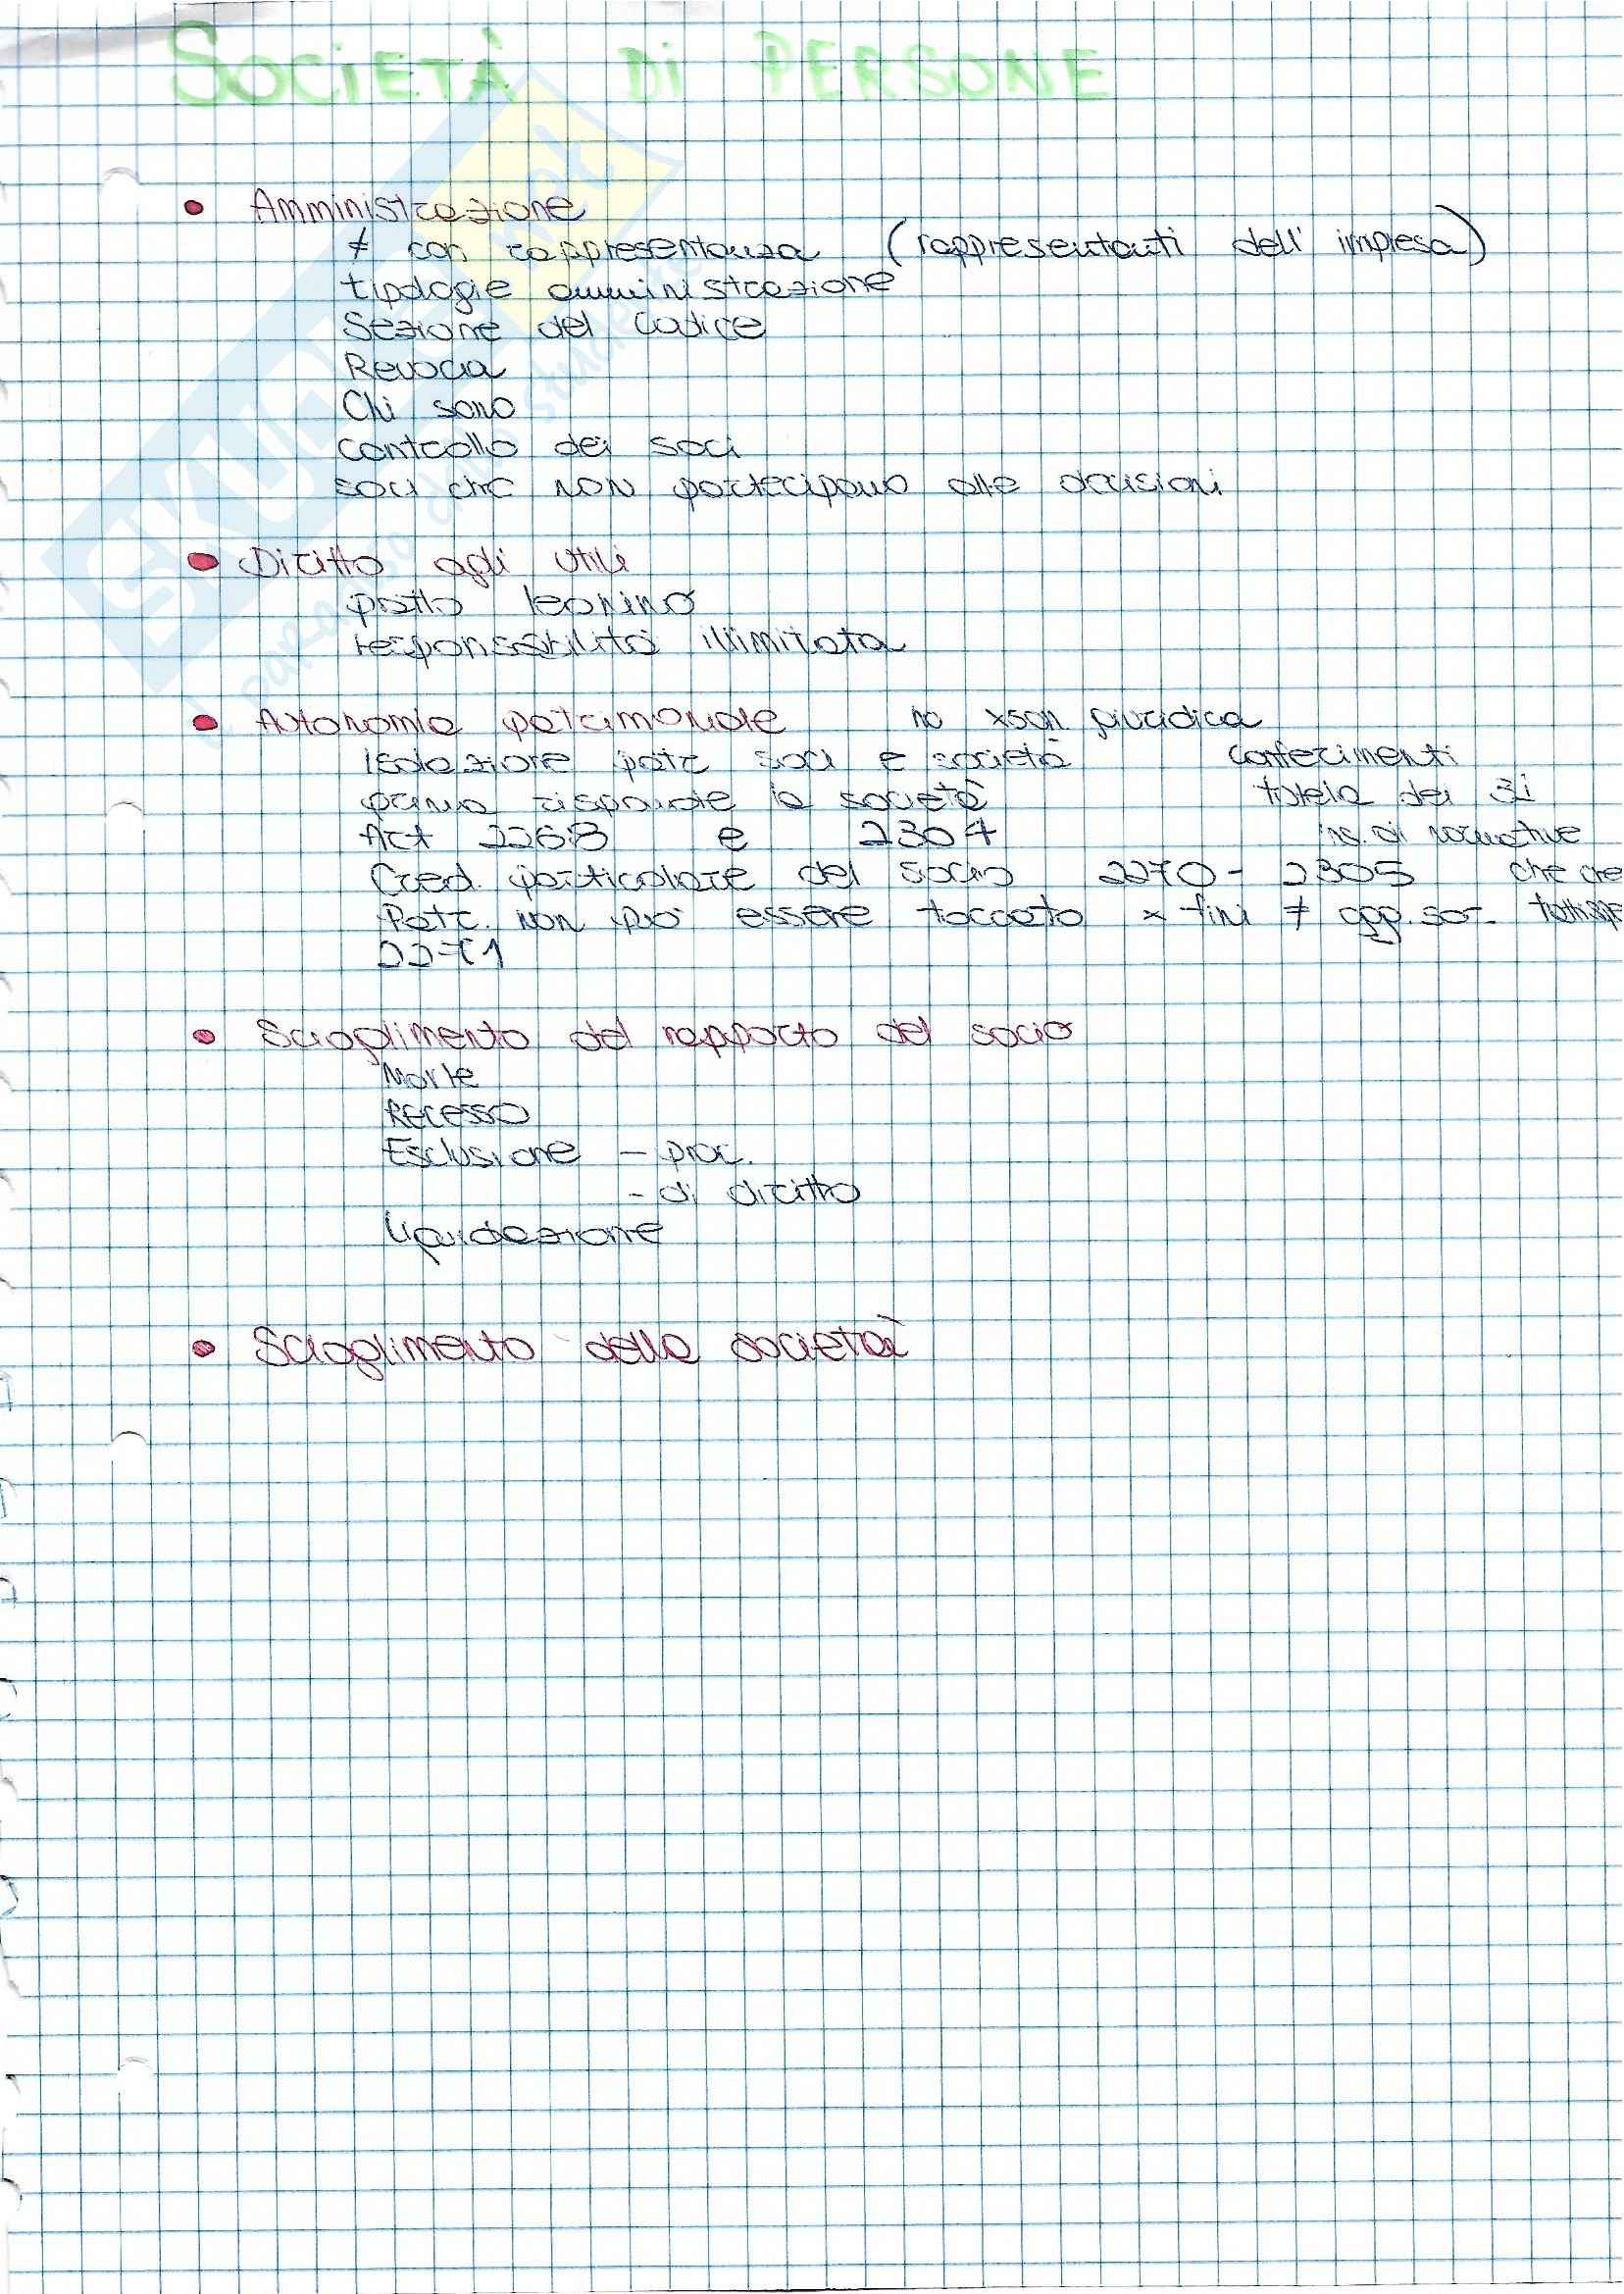 SOCIETÀ DI PERSONE
• Amministrazione
≠ con rappresentanza (rappresentanti dell' impresa)
tipologie amministrazione
Sezione del Codice
Revoca
Chi sono
Controllo dei soci
soci che NON partecipano alle decisioni
• Diritto agli utili
patto leonino
responsabilità illimitata
• Autonomia patrimoniale no xson. giuridica
Isolazione patr soci e società conferimenti
prima risponde la società tutela dei 3i
Art 2268 e 2304 ins. di normative
Cred. particolare del socio 2270 - 2305 che cre
Patr. non può essere toccato x fini ≠ ogg. so-
2271
• Scioglimento del rapporto del socio
Morte
Recesso
Esclusione - proc.
- di diritto
Liquidazione
• Scioglimento della società